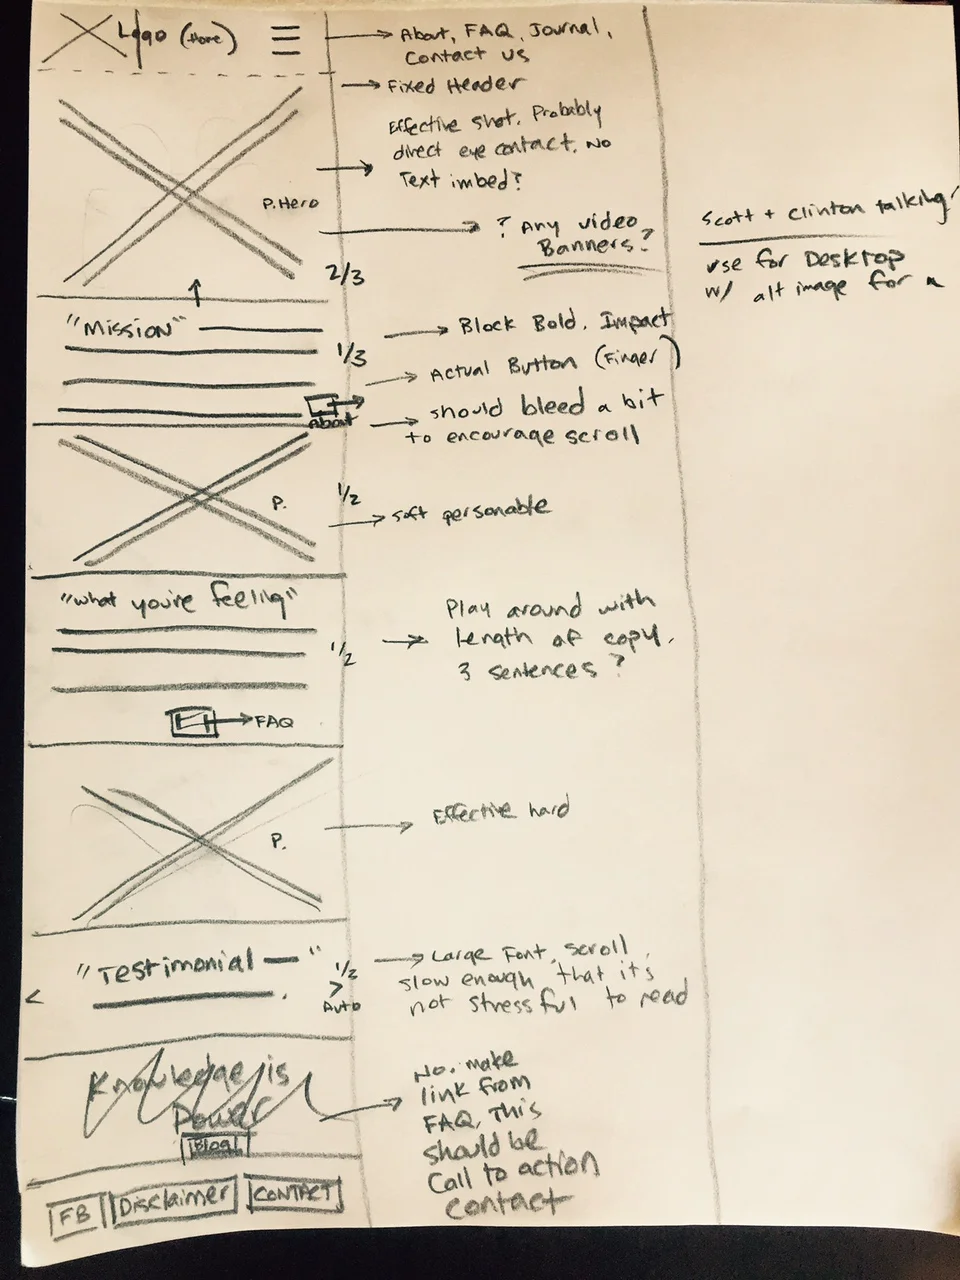 Logo (Home)
About, FAQ, Journal,
Contact us
Fixed Header
Effective shot. Probably
direct eye contact. No
Text imbed?
P. Hero
? Any video
Banners?
Scott + Clinton talking
use for Desktop
w/ alt image for a
2/3
"Mission"
Block Bold. Impact
1/3
Actual Button (Finger)
About
should bleed a bit
to encourage scroll
P.
1/2
soft personable
"what you're feeling"
Play around with
length of copy.
3 sentences?
1/2
FAQ
P.
Effective hard
"Testimonial — "
1/2
< >
Auto
Large Font, scroll
slow enough that it's
not stressful to read
Knowledge is
Power
Blog
No. make
link from
FAQ, This
should be
Call to action
contact
FB Disclaimer CONTACT